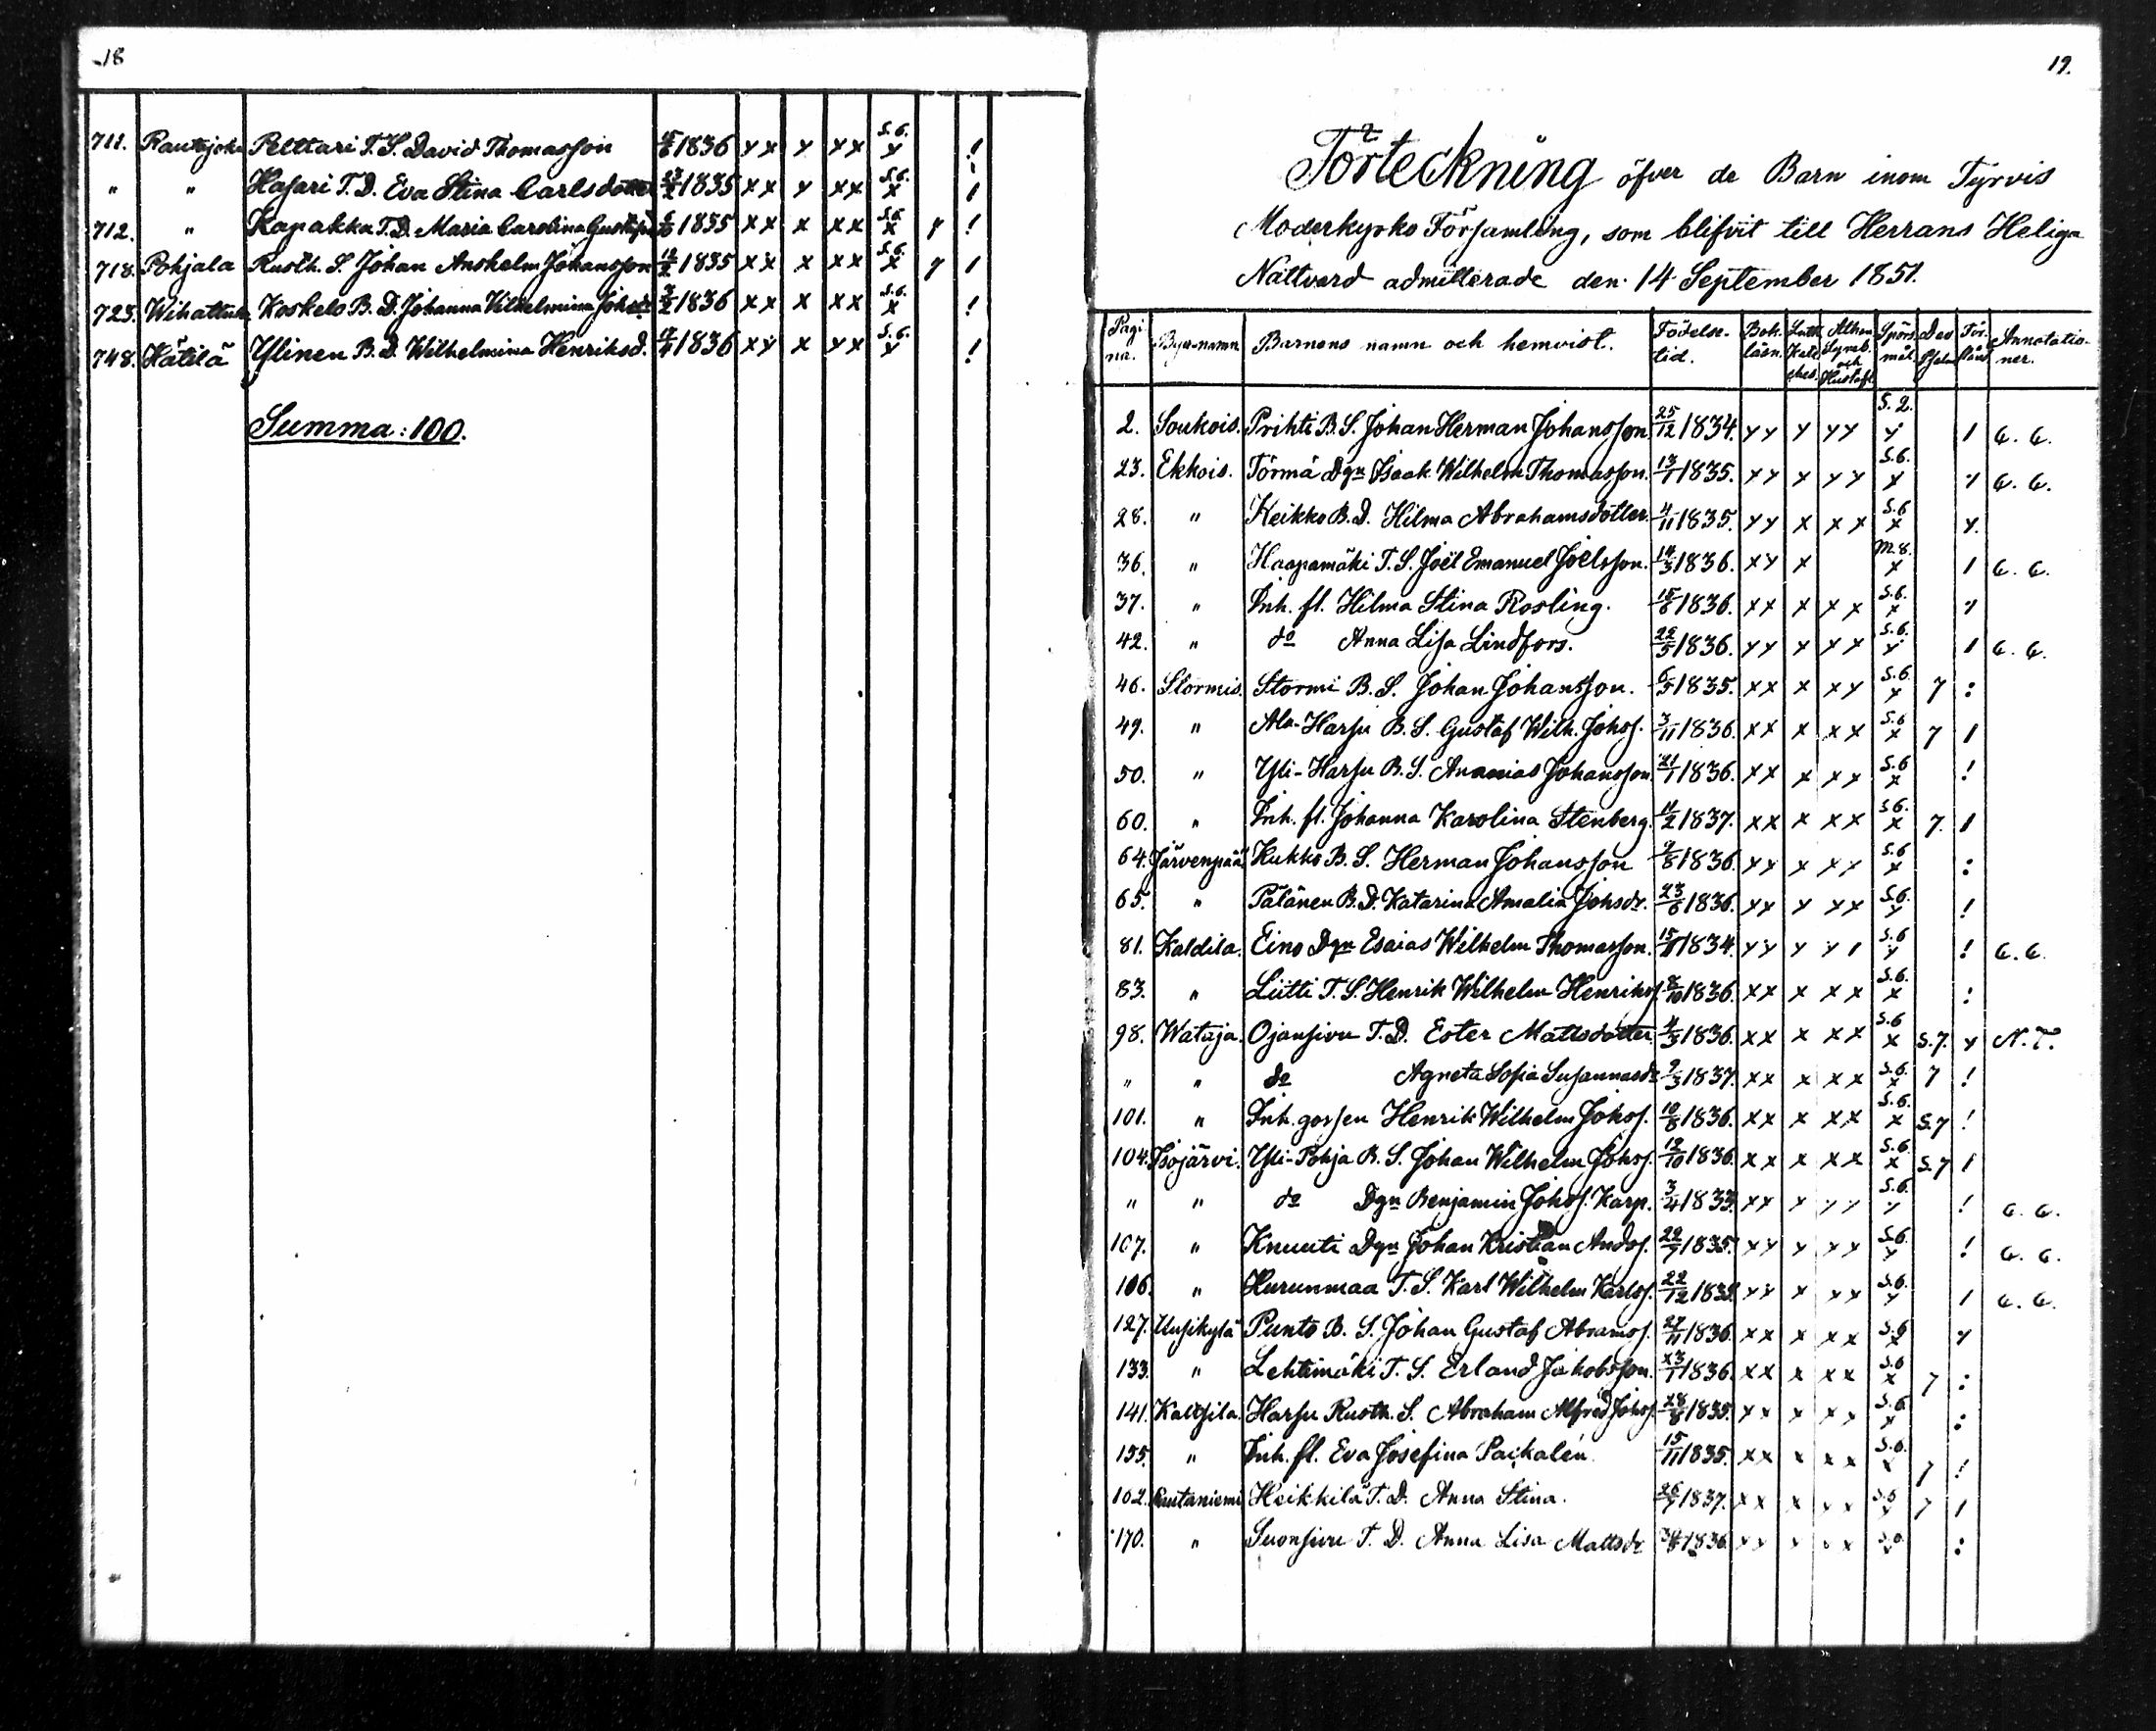 18
711. Rautajoki Pelttari T. S. David Thomasson 1836 xx x xx S. 6. x !
" " Hasari T. D. Eva Stina Carlsdotter 1835 xx x xx S. 6. x !
712. " Kapakka T. D. Maria Carolina 1835 xx x xx S. 6. x 7 !
718. Pohjala Rusth. S. Johan Anshelm Johansson 1835 xx x xx S. 6. x 7 1
723. Koskelo B. D. Johanna Vilhelmina Johsdr 1836 xx x xx S. 6. x !
748. Kätilä Ylinen B. D. Wilhelmina Henriksd. 1836 xx x xx S. 6. x !
Summa: 100.
19.
Förteckning öfver de Barn inom Tyrvis
Moderkyrko Församling, som blifvit till Herrans Heliga
Nattvard admitterade den 14 September 1851.
Pagi na. Bya-namn Barnens namn och hemvist. Födelse-tid. Bok. läsn. Luth. Kate ches. Athan. Symb. och Hustafl. Spörs mål. Dav. Psalm För. stånd Annotatio-ner.
2. Soukois. Prihti B. S. Johan Herman Johansson. 25/12 1834. xx x xx S. 2. x 1 C. C.
23. Ekkois. Törmä Dgn Isaak Wilhelm Thomasson. 13/1 1835. xx x xx S. 6. x x C. C.
28. " Keikko B. D. Hilma Abrahamsdotter. 4/11 1835. xx x xx S. 6 x x.
36. " Haapamäki T. S. Joël Emanuel Joëlsson. 14/3 1836. xx x M. 8. x 1 C. C.
37. " Inh. fl. Hilma Stina Rosling. 15/8 1836. xx x xx S. 6. x x
42. " do Anna Lisa Lindfors. 22/5 1836. xx x xx S. 6. x 1 C. C.
46. Stormis. Stormi B. S. Johan Johansson. 6/5 1835. xx x xx S. 6 x 7 :
49. " Ala-Harsu B. S. Gustaf Wilh. Johss. 3/11 1836. xx x xx S. 6 x 7 1
50. " Yli-Harsu B. S. Ananias Johansson 21/1 1836. xx x xx S. 6 x !
60. " Inh. fl. Johanna Karolina Stenberg. 11/2 1837. xx x xx S. 6. x 7. 1
64. Järvenpää Kukko B. S. Herman Johansson 9/8 1836. xx x xx S. 6 x :
65. " Pätänen B. D. Katarina Amalia Johsdr. 23/6 1836. xx x xx S. 6. x !
81. Kaldila. Eino Dgn Esaias Wilhelm Thomasson. 1834. xx x x1 S. 6 x ! C. C.
83. " Liitti T. S. Henrik Wilhelm Henrikss. 8/10 1836. xx x xx S. 6. x :
98. Wataja. Ojansivu T. D. Ester Mattsdotter 1836. xx x xx S. 6 x S. 7. x N. T.
" " do Agneta Sofia Susannasdr 9/3 1837. xx x xx S. 6. x 7 !
101. " Inh. gossen Henrik Wilhelm Johss. 10/8 1836. xx x xx S. 6. x S. 7 !
104. Isojärvi. Yli-Pohja B. S. Johan Wilhelm Johss. 12/10 1836. xx x xx S. 6. x S. 7 1
" " do Dgn Benjamin Johss. Karp. 3/4 1833. xx x xx S. 6. x ! C. C.
107. " Knuuti Dgn Johan Kristian Andss. 1835. xx x xx S. 6. x ! C. C.
106. " Hurunmaa T. S. Karl Wilhelm Karlss. 22/12 xx x xx S. 6. x 1 C. C.
127. Uusikylä Punto B. S. Johan Gustaf Abramss. 27/11 1836. xx x xx S. 6 x x
133. " Lehtimäki T. S. Erland Jakobsson. 1836. xx x xx S. 6 x 7 :
141. Kaltsila. Harsu Rusth. S. Abraham Alfred Johss. 28/8 1835. xx x xx S. 6. x :
155. " Inh. fl. Eva Josefina Paikalén 15/11 1835. xx x xx S. 6. x 7 !
162. Rautaniemi Heikkilä T. D. Anna Stina. 1837. xx x xx S. 6 x 7 1
170. " Suonsivu T. D. Anna Lisa Mattsdr 1836. xx x xx S. 6. x :